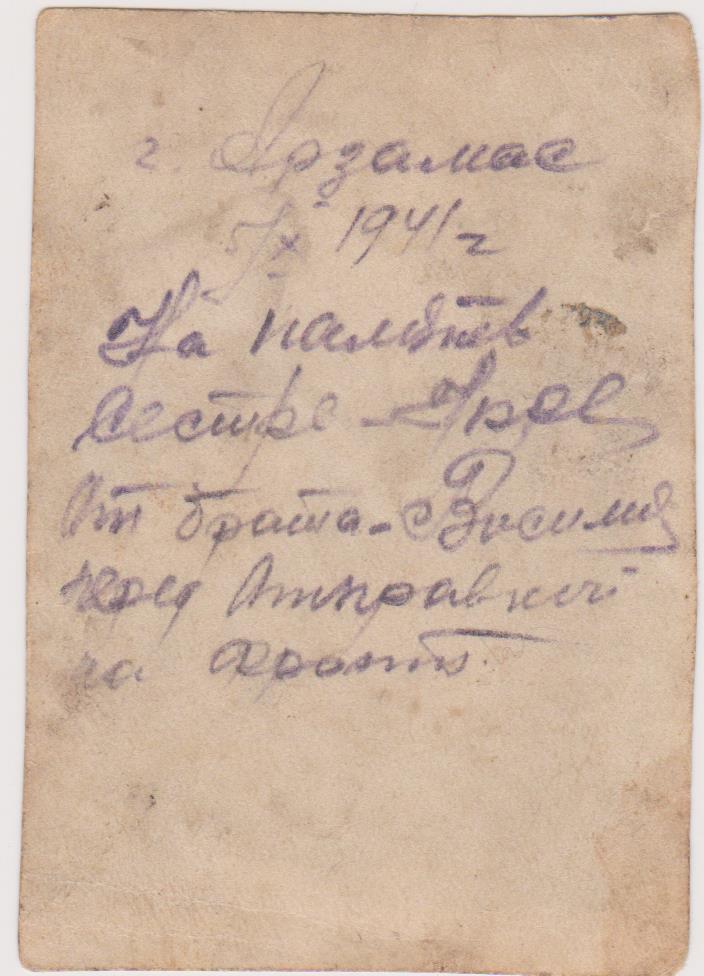 г. Арзамас
5/X 1941 г
На память
сестре -
От брата - Василия
перед Отправкой
на Фронт.